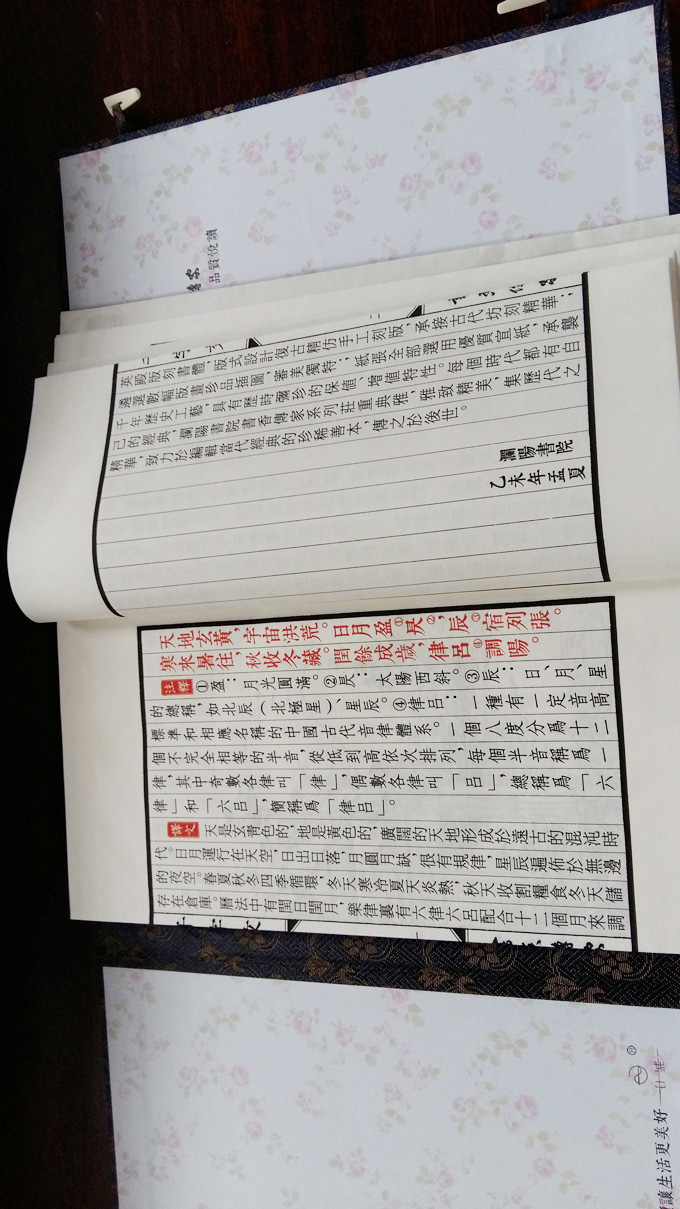 品質悅讀
英殿版刻書體，版式設計復古精仿手工刻版，承接古代坊刻精華；
遴選數幅版畫珍品插圖，審美獨特；紙張全部選用優質宣紙，承襲
千年歷史工藝，具有歷時彌珍的保值、增值特性。每個時代都有自
己的經典，瀾陽書院書香傳家系列莊重典雅，雅致精美，集歷代之
精華，致力於編輯當代經典的珍稀善本，傳之於後世。
瀾陽書院
乙未年孟夏
天地玄黃，宇宙洪荒。日月盈①昃②，辰③宿列張。
寒來暑往，秋收冬藏。閏餘成歲，律呂④調陽。
注釋 ①盈：月光圓滿。②昃：太陽西斜。③辰：日、月、星
的總稱，如北辰（北極星）、星辰。④律呂：一種有一定音高
標準和相應名稱的中國古代音律體系。一個八度分爲十二
個不完全相等的半音，從低到高依次排列，每個半音稱爲一
律，其中奇數各律叫「律」，偶數各律叫「呂」，總稱爲「六
律」和「六呂」，簡稱爲「律呂」。
譯文 天是玄青色的，地是黃色的，廣闊的天地形成於遠古的混沌時
代。日月運行在天空，日出日落，月圓月缺，很有規律，星辰遍佈於無邊
的夜空。春夏秋冬四季循環，冬天寒冷夏天炎熱，秋天收割糧食冬天儲
存在倉庫。曆法中有閏日閏月，樂律裏有六律六呂配合十二個月來調
讓生活更美好